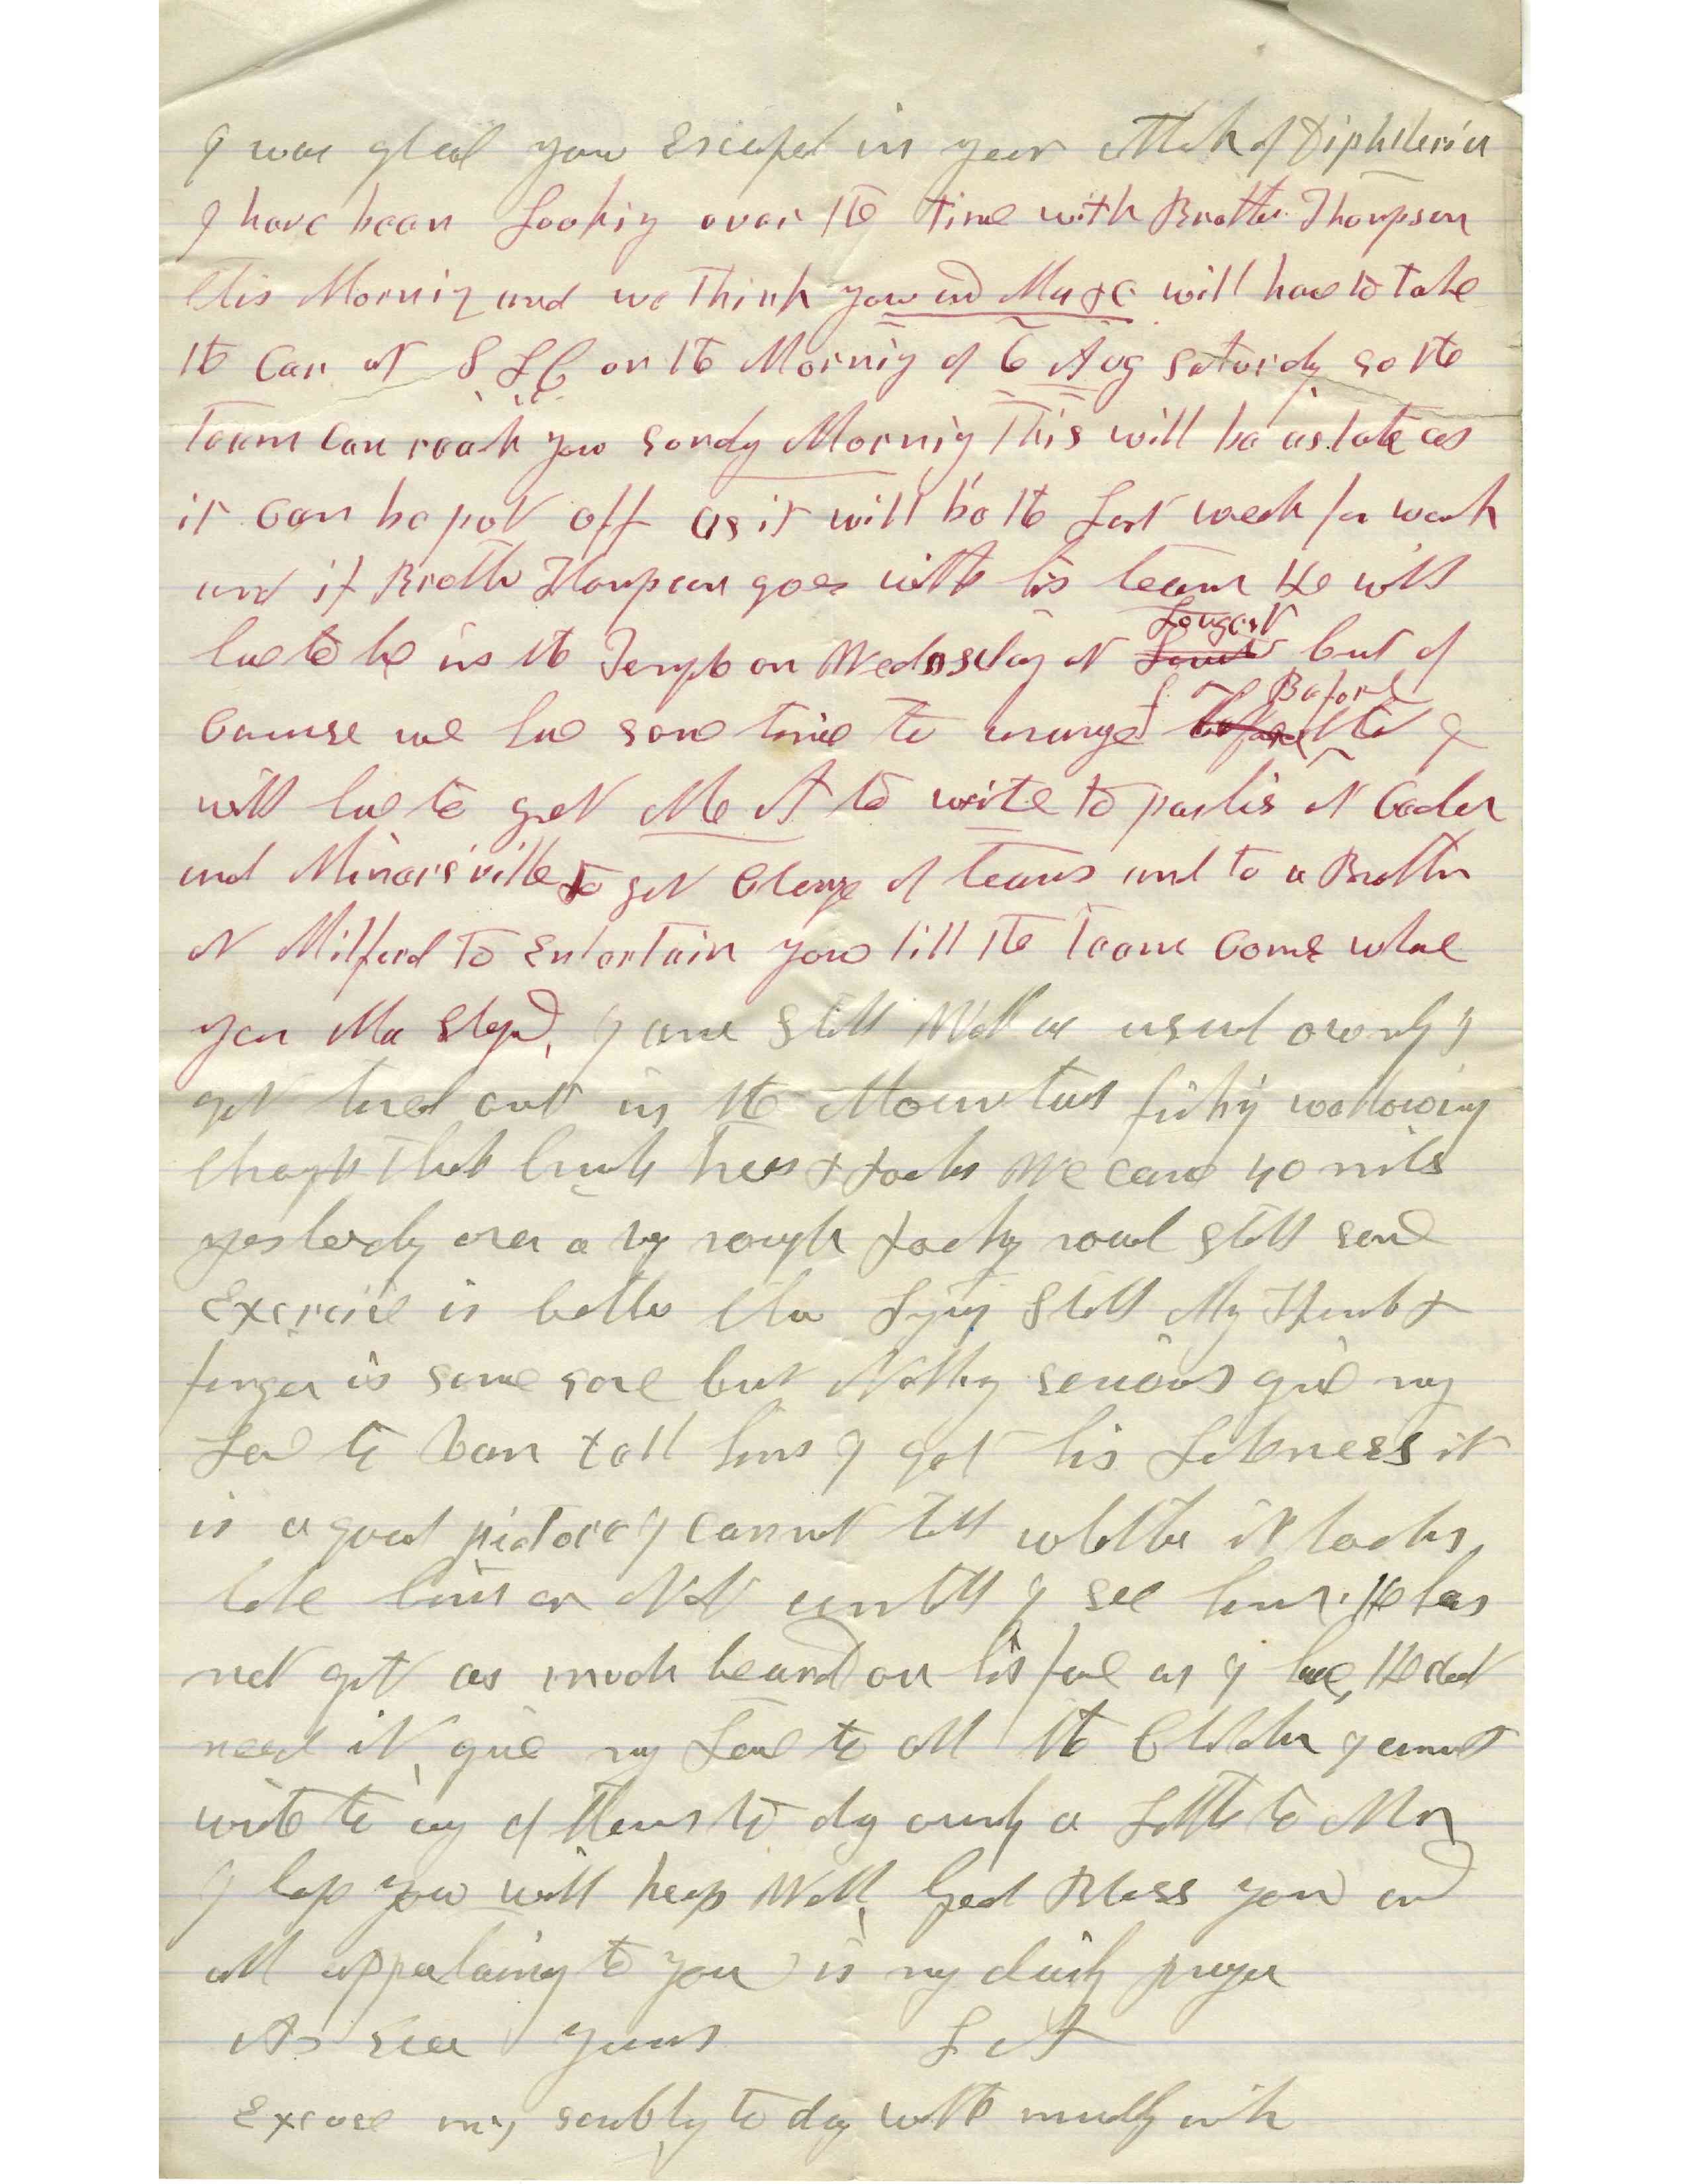 I was glad you Escaped in your attak of Diphtheria
I have been Looking over the time with Brother Thompson
this Morning and we Think you and Muxe will have to Take
the Car at S L C on the Morning of 6 Aug Saturdy so the
Team Can reach you sondy Morning This will be as late as
it Can be pot off as it will be the Last week for work
and if Brother Thompson goes with his team He will
have to be in the Temple on Wednesday at Longest but of
Caurse we have some time to arrange Before the I
will have to get Mc A to write to parties at Ceder
and Minersville to get Charge of teams and to a Brother
at Milford To Entertain you till the Team Come whare
you Ma Stop, I am Still Well as usual owenly I
get tired out in the Mountains fishing wallowing
through Thick brush trees & rocks We came 40 mils
yesterdy over a very rough rocky road still some
Exercise is better than Lying Still My Thumb &
finger is some sore but Nothing serious give my
Love to tell him I got his Likness it
is a good pictore I cannot tell whether it looks
like him or Not untill I see him. He has
not got as much beard on his face as I have, He dont
need it, give my Love to all the Childen I cannot
write to any of them to day ownly a Little to
I hope you will keep Well, God Bless you and
all appertaining to you is my daily prayer
As Ever Yours L A
Excuse my scribbly to day with muddy ink